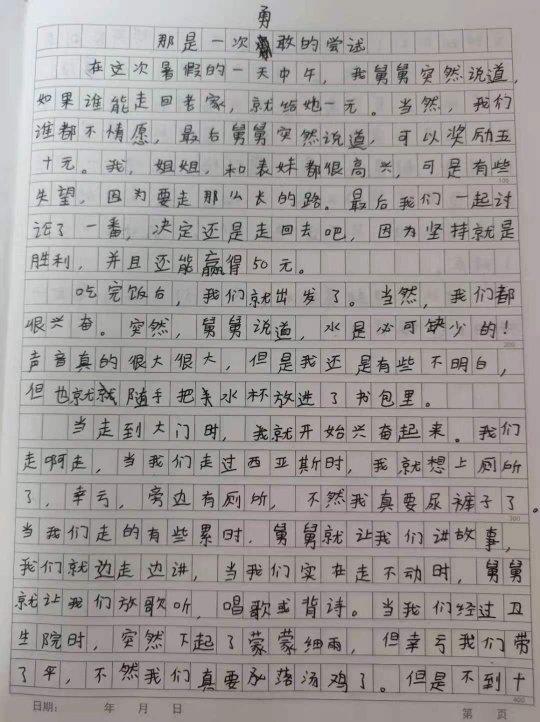 勇
那是一次敢的尝试
在这次暑假的一天中午，我舅舅突然说道，
如果谁能走回老家，就给她一元。当然，我们
谁都不情愿，最后舅舅突然说道，可以奖励五
十元。我，姐姐，和表妹都很高兴，可是有些
失望，因为要走那么长的路。最后我们一起讨
论了一番，决定还是走回去吧，因为坚持就是
胜利，并且还能赢得50元。
100
吃完饭后，我们就出发了。当然，我们都
很兴奋。突然，舅舅说道，水是必可缺少的！
200
声音真的很大很大，但是我还是有些不明白，
但也就随手把关水杯放进了书包里。
当走到大门时，我就开始兴奋起来。我们
走啊走，当我们走过西亚斯时，我就想上厕所
了，幸亏，旁边有厕所，不然我真要尿裤子了。
300
当我们走的有些累时，舅舅就让我们讲故事，
我们就边走边讲，当我们实在走不动时，舅舅
就让我们放歌听，唱歌或背诗。当我们经过卫
生院时，突然下起了蒙蒙细雨，但幸亏我们带
了伞，不然我们真要成落汤鸡了。但是不到十
400
日期： 年 月 日 第 页